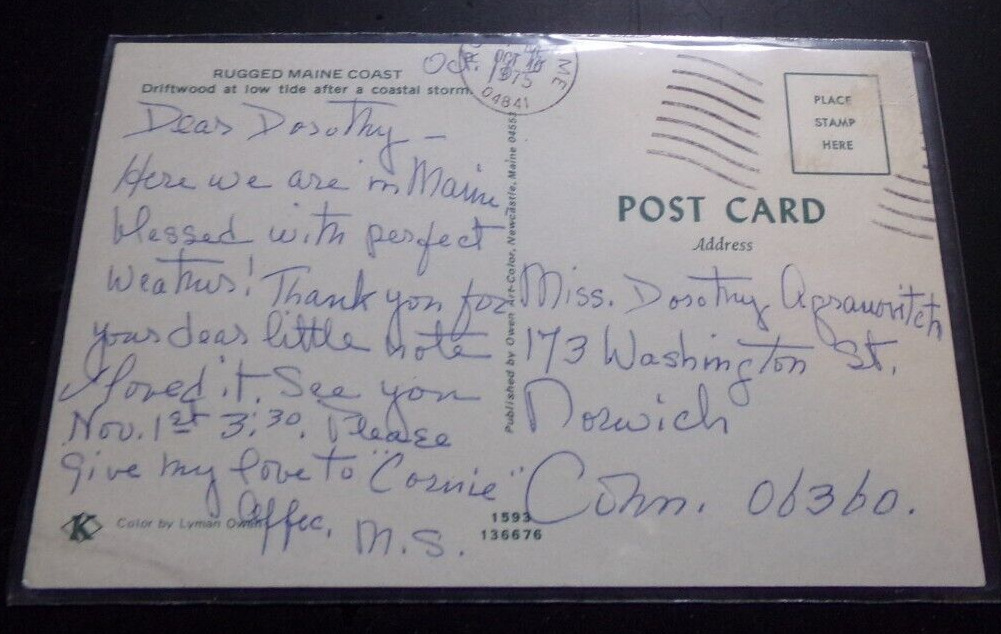 RUGGED MAINE COAST
Driftwood at low tide after a coastal storm.
Oct.
1975
ME
04841
Dear Dorothy –
Here we are in Maine
blessed with perfect
weather! Thank you for
your dear little note
I loved it. See you
Nov. 1st 3:30. Please
give my love to "Cornie"
Affec. M.S.
Color by Lyman Owen
K
1593
136676
Published by Owen Art-Color, Newcastle, Maine 04553
PLACE
STAMP
HERE
POST CARD
Address
Miss. Dorothy Agranovitch
173 Washington St.
Norwich
Conn. 06360.